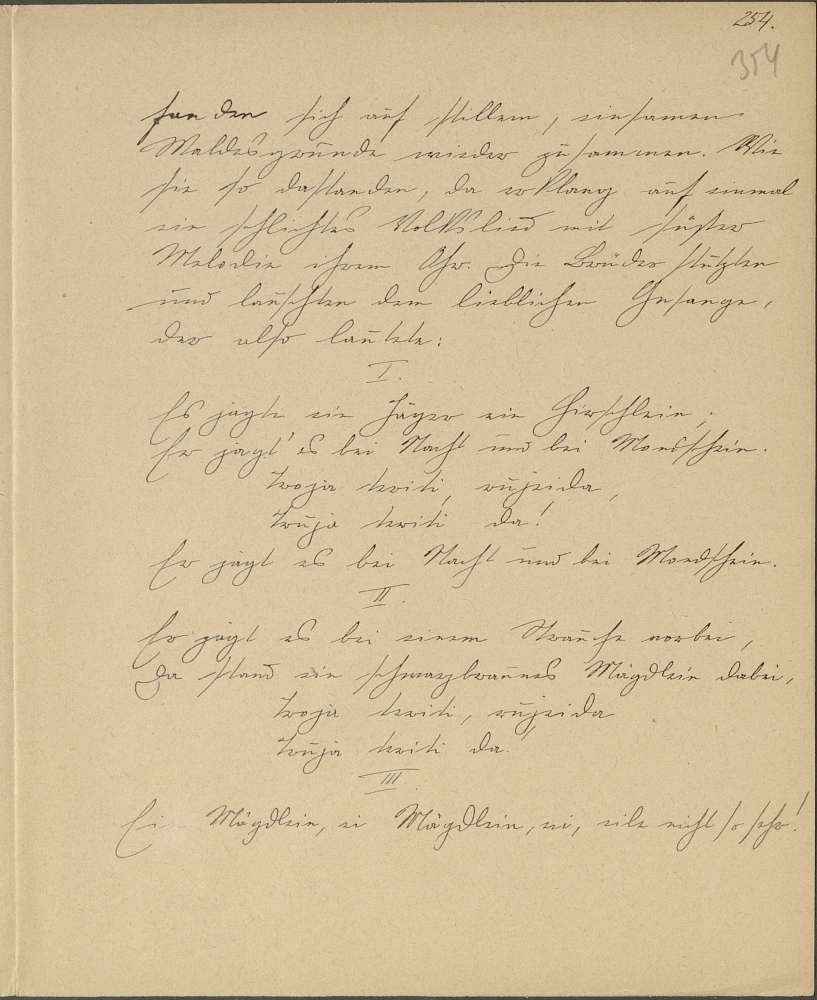 254.
354
fanden sich auf stillem, einsamen
Waldesgrunde wieder zusammen. Wie
sie so dastanden, da erklang auf einmal
ein schlichtes Volkslied mit süßer
Melodie ihrem Ohr. Die Brüder stutzten
und lauschten dem lieblichen Gesange,
der also lautete:
I.
Es jagte ein Jäger ein Hirschlein,
Er jagt' es bei Nacht und bei Mondschein.
troja triti, rujeida,
truja triti da!
Er jagt es bei Nacht und bei Mondschein.
II.
Er jagt es bei einem Strauche vorbei,
Da stand ein schwarzbraunes Mägdlein dabei,
troja triti, rujeida
truja triti da!
III.
Ei Mägdlein, ei Mägdlein, ei, eile nicht so sehr!